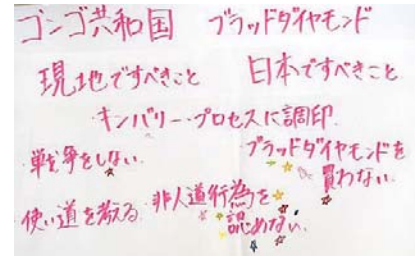 コンゴ共和国 ブラッドダイヤモンド
現地ですべきこと 日本ですべきこと
・キンバリー・プロセスに調印.
戦争をしない. ブラッドダイヤモンドを
買わない.
使い道を考える. 非人道行為を
認めない.